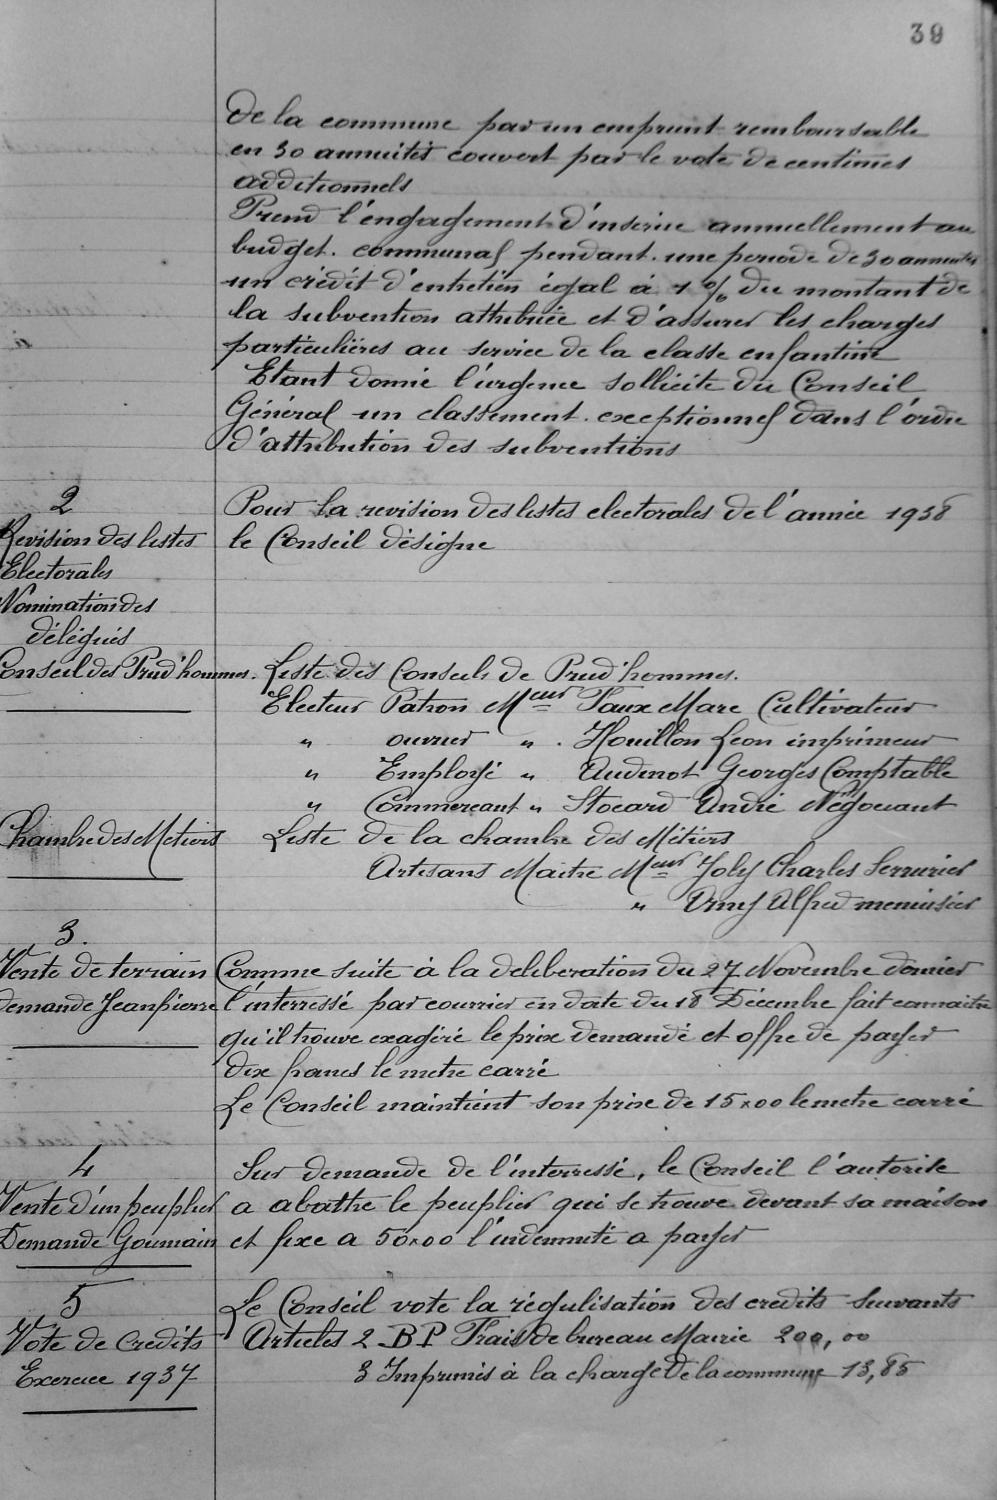 39
De la commune par un emprunt remboursable
en 30 annuités couvert par le vote de centimes
additionnels
Prend l'engagement d'inscrire annuellement au
budget communal pendant une periode de 30 annuités
un crédit d'entretien égal à 1 % du montant de
la subvention attribuée et d'assurer les charges
particulières au service de la classe enfantine
Etant donné l'urgence sollicite du Conseil
Général un classement exceptionnel dans l'ordre
d'attribution des subventions
2
Revision des listes
Electorales
Nomination des
délégués
Pour la revision des listes electorales de l'année 1938
le Conseil désigne
Conseil des Prud'hommes. Liste des Conseils de Prud'hommes.
Electeur Patron Meur Faux Marc Cultivateur
" ouvrier " Houillon Leon imprimeur
" Employé " Audinot Georges Comptable
" Commercant " Stocard André Négociant
Chambre des Metiers Liste de la chambre des Métiers
Artisans Maitre Meur Joly Charles Serrurier
" Alfred menuisier
3.
Vente de terrain
demande Jeanpierre
Comme suite à la deliberation du 27 Novembre dernier
l'interressé par courrier en date du 18 Décembre fait connaitre
qu'il trouve exagéré le prix demandé et offre de payer
dix francs le metre carré
Le Conseil maintient son prix de 15x00 le metre carré
4
Vente d'un peuplier
Demande Goumain
Sur demande de l'interressé, le Conseil l'autorise
a abattre le peuplier qui se trouve devant sa maison
et fixe a 50x00 l'indemnité a payer
5
Vote de credits
Exercice 1937
Le Conseil vote la régulisation des credits suivants
Articles 2 BP Frais de bureau Mairie 200,00
3 Imprimés à la charge de la commune 13,85